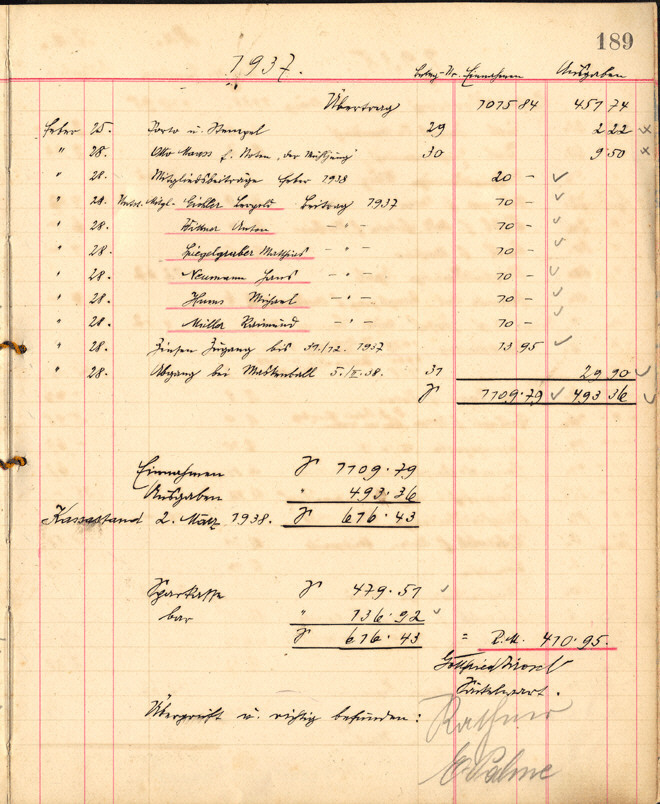 189
1937.
Beleg-Nr. Einnahmen Ausgaben
Übertrag 1015 84 451 74
Feber 25. Porto u. Stempel 29 2 22
" 28. Otto Maass f. Noten "der 30 9·50
" 28. Mitgliedsbeiträge Feber 1938 20 –
" 28. Unterst. Mitgl. Leopold Beitrag 1937 10 –
" 28. Anton – " – 10 –
" 28. Spiegelgruber Matthias – " – 10 –
" 28. Neumann Hans – " – 10 –
" 28. Michael – " – 10 –
" 28. Müller Raimund – " – 10 –
" 28. Zinsen Zugang bis 31./12. 1937 13 95
" 28. Abgang bei Maskenball 5./II. 38. 31 29 90
S 1109·79 493 36
Einnahmen S 1109·79
Ausgaben " 493·36
Kassastand 2. März 1938. S 616·43
Sparkasse S 479·51
bar " 136·92
S 616·43 = R.M. 410·95.
Gottfried
Säckelwart.
Überprüft u. richtig befunden:
E. Palme